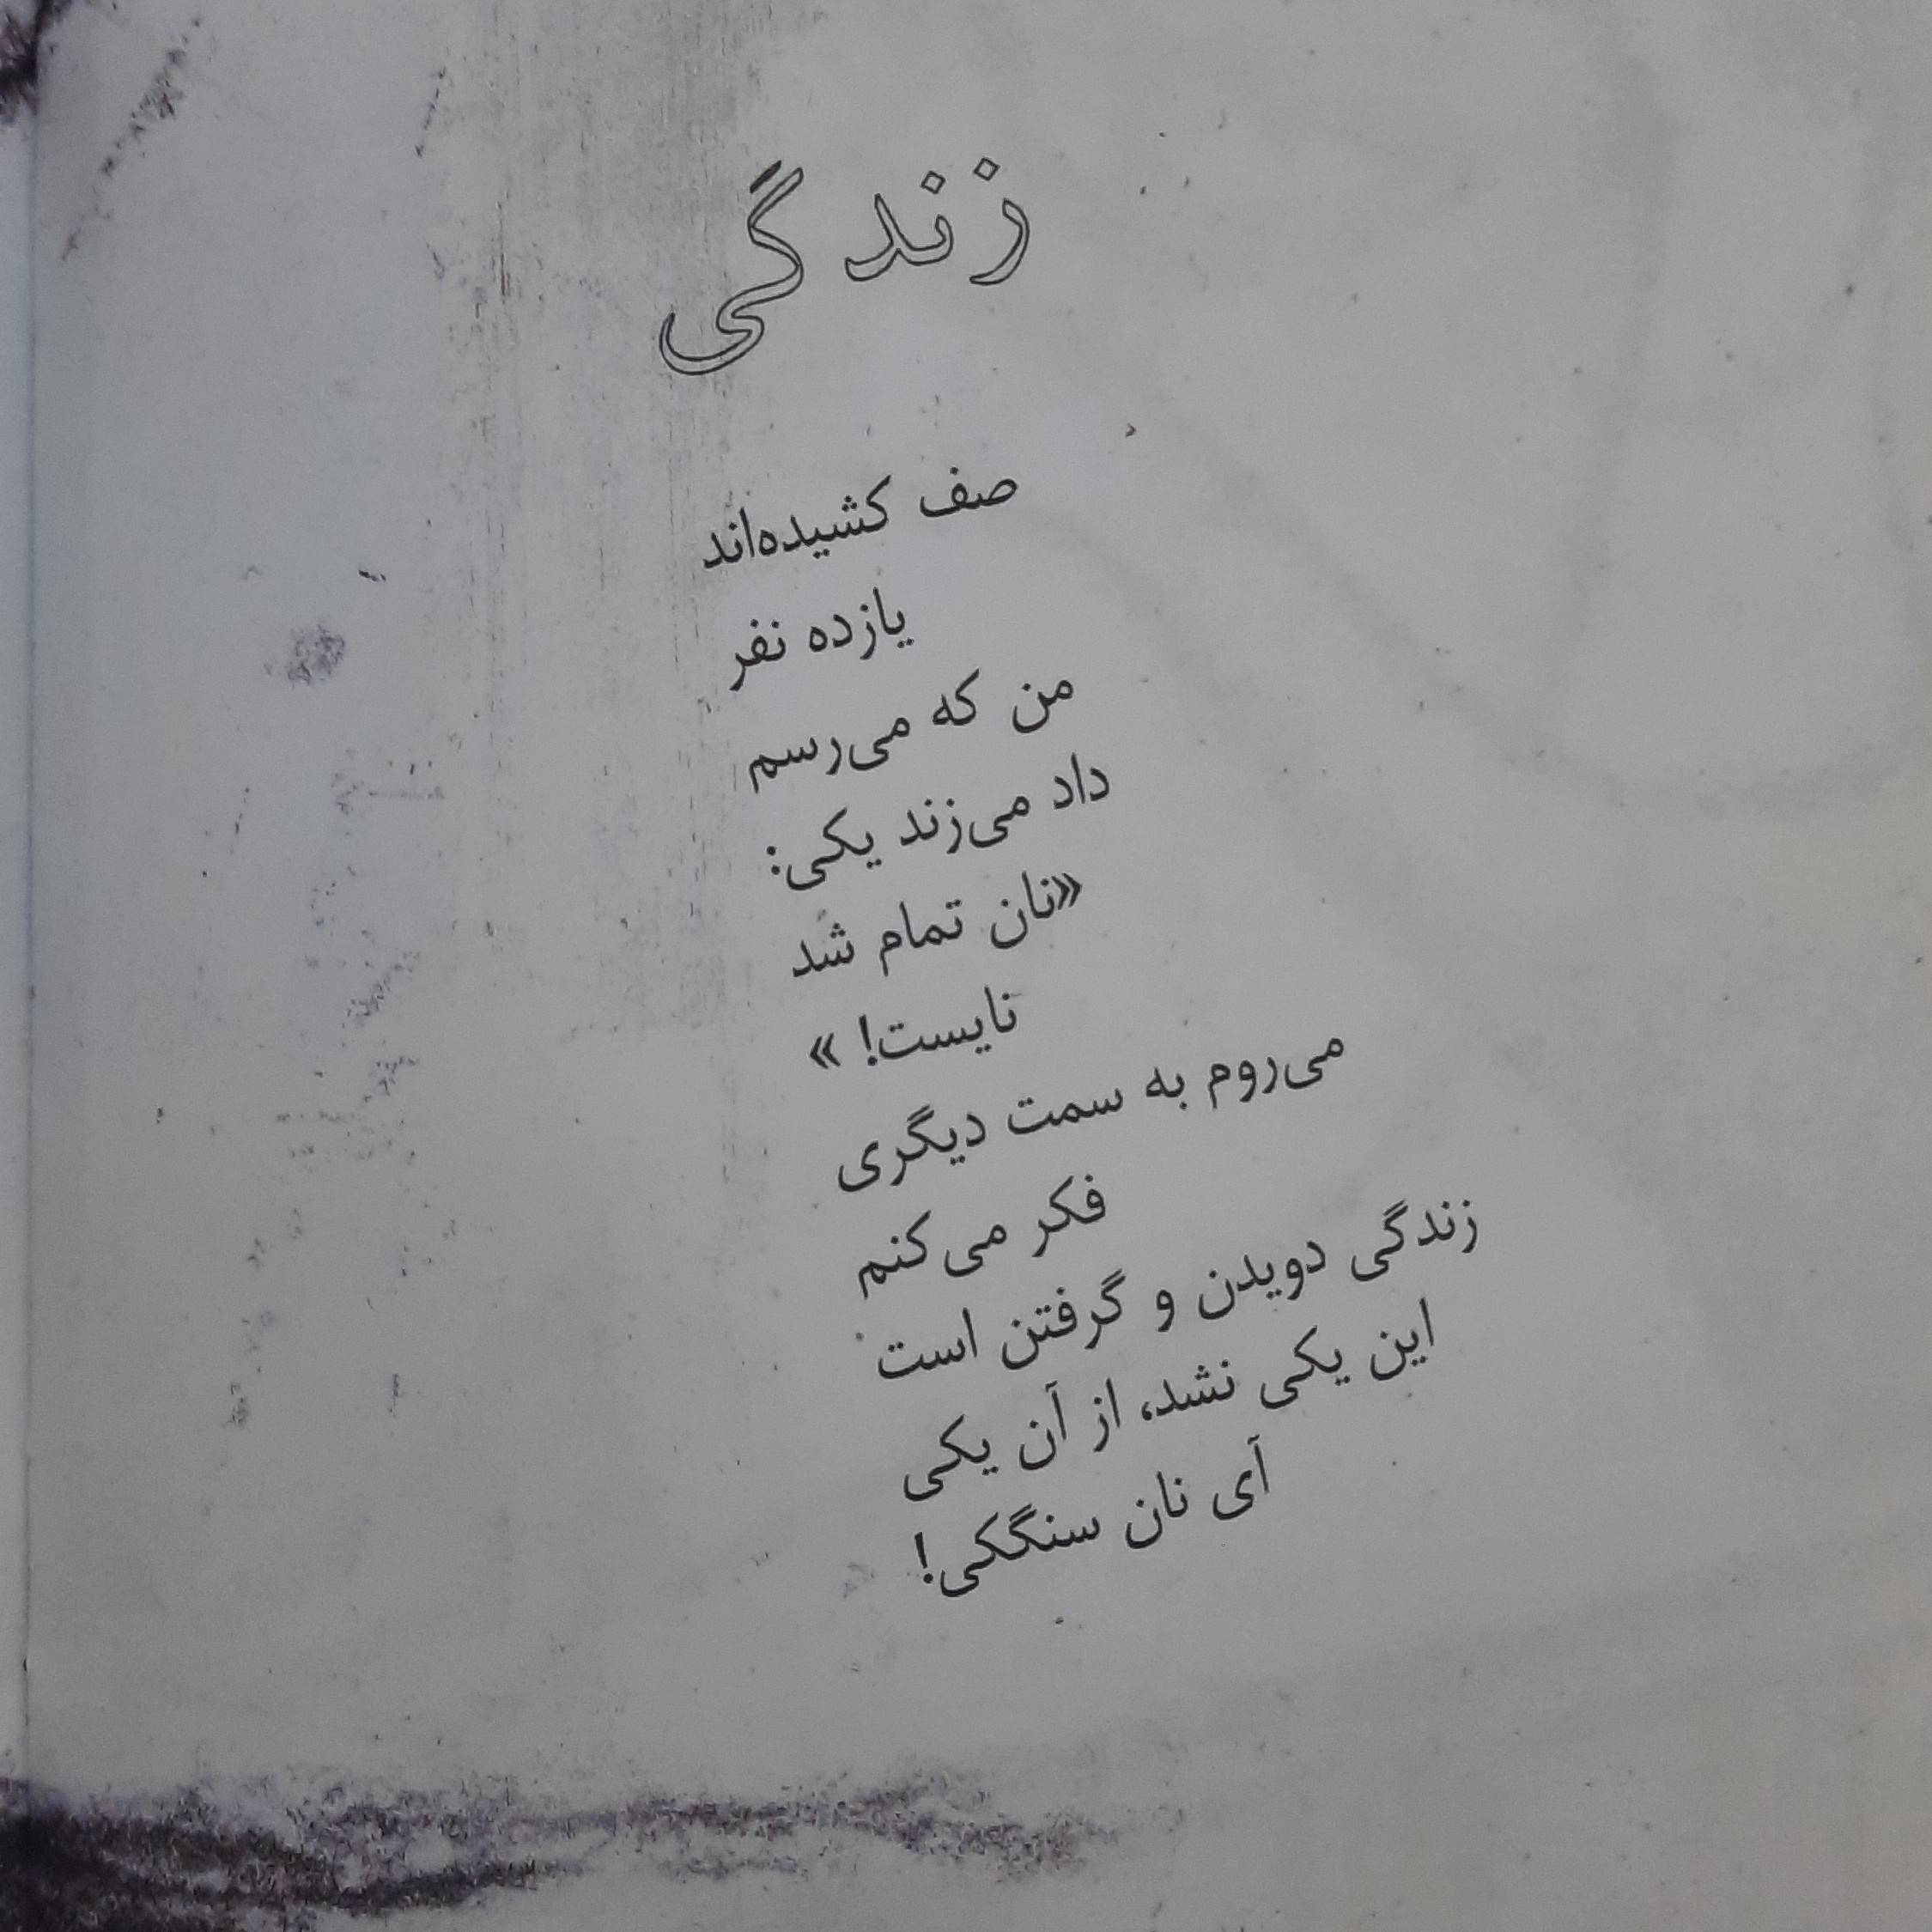 زندگی
صف کشیده‌اند
یازده نفر
من که می‌رسم
داد می‌زند یکی:
«نان تمام شد
نایست! »
می‌روم به سمت دیگری
فکر می‌کنم
زندگی دویدن و گرفتن است
این یکی نشد، از آن یکی
آی نان سنگکی!